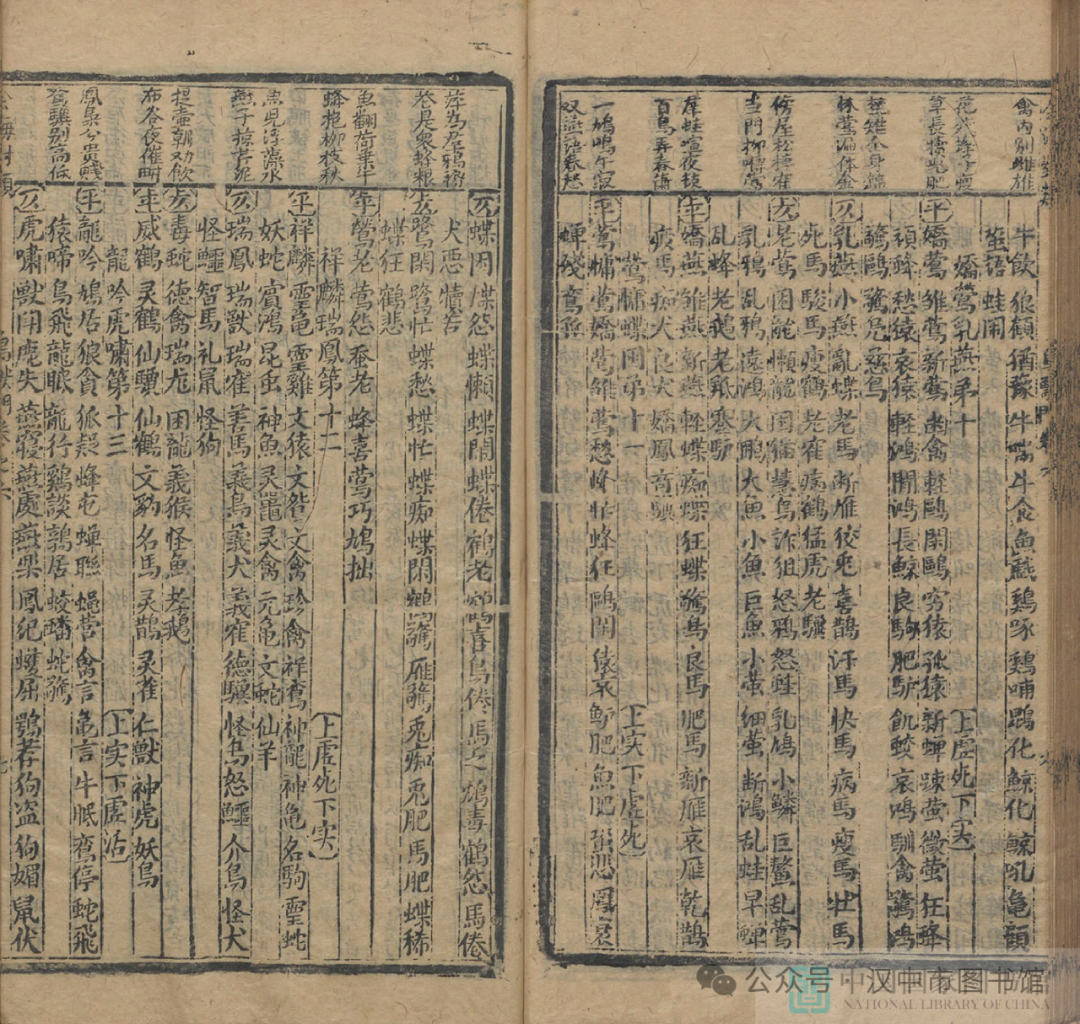 禽肉别雌雄
花外蜂子瘦
草長犢兒肥
林鶯遍体金
傍屋松棲雀
當門柳囀鶯
庭蛙喧夜鼓
百鳥弄春簧
一鳩鳴午寂
双燕語春愁
牛飲 狼顧 猶豫 牛喘 牛食 魚戲 鷄啄 鷄哺 鵾化 鯨化 鯨吼 龜顧
蛩語 蛙鬧
嬌鶯乳燕第十 上虛死下實
平 嬌鶯 雛鶯 新鶯 幽禽 輕鷗 閑鷗 窮猿 孤猿 新蟬 踈螢 微螢 狂蜂
頑蜂 愁猿 哀猿 輕鴻 閒鴻 長鯨 良駒 肥驢 飢蛟 哀鴻 馴禽 驚鴻
驚鷗 驚鳧 慈烏
仄 乳燕 小燕 亂蝶 老馬 断雁 狡兎 喜鵲 汗馬 快馬 病馬 瘦馬 壮馬
死馬 駿馬 瘦鶴 老雀 病鶴 猛虎 老驥
老鶯 困龍 懶龍 困猫 慧鳥 詐狙 怒鴉 怒蛙 乳鳩 小鱗 巨鰲 乱鶯
乳鴉 乱鴉 遠鴻 大鵬 大魚 小魚 巨魚 小螢 細螢 断鴻 乱蛙 早蟬
乱蜂 老鶴 老羆 蹇驢
平 嬌燕 雛燕 新燕 輕蝶 痴蝶 狂蝶 驚鳥 良馬 肥馬 新雁 哀雁 乾鵲
疲馬 痴犬 良犬 嬌鳳
鶯慵蝶困第十一 上实下虛死
平 鶯慵 鶯嬌 鶯雛 鶯愁 蜂忙 蜂狂 鷗閑 猿哀 鱸肥 魚肥 蛩悲 鳳哀
蟬殘 鸞孤
萍為魚
花是衆蜂粮
魚翻荷葉
蜂抱柳枝秋
燕子掠青泥
提壺朝劝飲
布谷夜催畊
鳳梟分貴賤
駑驥别高低
仄 蝶困 蝶怨 蝶懶 蝶鬧 蝶倦 鶴老 鵲喜 鳥倦 馬乏 鴆毒 鶴怨 馬倦
犬惡 犢苦
鷺閑 鷺忙 蝶愁 蝶忙 蝶痴 蝶閑 鷗驚 雁驚 兎痴 兎肥 馬肥 蝶稀
蝶狂 鶴悲
平 鶯老 鶯怨 蚕老 蜂喜 鶯巧 鳩拙
祥麟瑞鳳第十二 上虛死下实
平 祥麟 靈龜 靈雞 文猿 文鴛 文禽 珍禽 祥鸞 神龍 神龜 名駒 靈蛇
妖蛇 賓鴻 昆虫 神魚 灵鼍 灵禽 元龜 文蛇 仙羊
仄 瑞鳳 瑞獸 瑞雀 善馬 義鳥 義犬 義雀 德驥 怪鳥 怒鱷 介鳥 怪犬
怪鱷 智馬 礼鼠 怪狗
毒蛇 德禽 瑞尨 困龍 義猴 怪魚 老鵝
平 威鶴 灵鶴 仙驥 仙鶴 文豹 名馬 灵鵲 灵雀 仁獸 神虎 妖鳥
龍吟虎嘯第十三 上实下虛活
平 龍吟 鳩居 狼貪 狐疑 蜂屯 蟬聯 蝇營 禽言 龜言 牛眠 鸞停 蛇飛
猿啼 鳥飛 龍眠 龍行 鷄談 鶉居 蛟蟠 蛇驚
仄 虎嘯 獸鬧 鹿失 燕寢 燕處 燕樂 鳳紀 蠖屈 鶚荐 狗盗 狗媚 鼠伏
公众号 中汉中市图书馆
NATIONAL LIBRARY OF CHINA